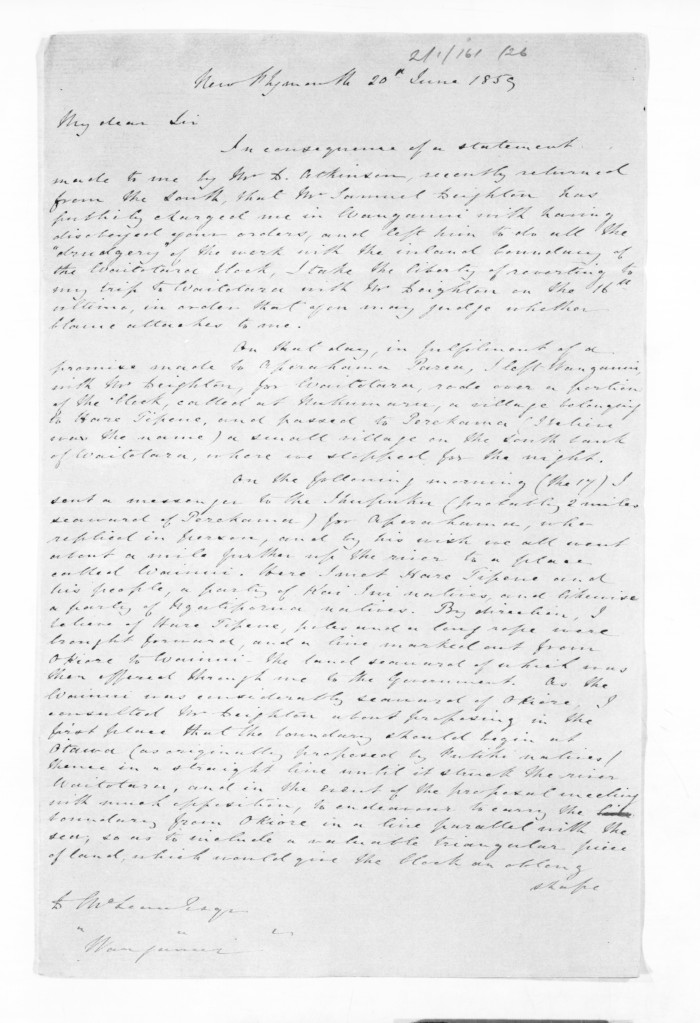 2/1/161 (26
New Plymouth 20th June 1859
My dear Sir
In consequence of a statement
made to me by Mr D. Atkinson, recently returned
from the South, that Mr Samuel Deighton has
publicly charged me in Wanganui with having
disobeyed your orders, and left him to do all the
"drudgery" of the work with the inland boundary of
the Waitotara block, I take the liberty of reverting to
my trip to Waitotara with Mr Deighton on the 16th
ultimo, in order that you may judge whether
blame attaches to me.
On that day, in fulfilment of a
promise made to Aperahama Parea, I left Wanganui,
with Mr Deighton, for Waitotara, rode over a portion
of the Block, called at Nukumaru, a village belonging
to Hare Tipene, and passed to Perekama (I believe
was the name) a small village on the South bank
of Waitotara, where we stopped for the night.
On the following morning (the 17) I
sent a messenger to the Ihupuku (probably 2 miles
seaward of Perekama) for Aperahama, who
replied in person, and by his wish we all went
about a mile further up the river to a place
called Wainui. Here I met Hare Tipene and
his people, a party of Kai Iwi natives, and likewise
a party of Ngatiporua natives. By direction, I
believe of Hare Tipene, poles and a long rope were
brought forward, and a line marked out from
Okiore to Wainui. The land seaward of which was
then offered through me to the Government. As the
Wainui was considerably seaward of Okiore, I
consulted Mr Deighton about proposing in the
first place that the boundary should begin at
Otawa (as originally proposed by Putiki natives)
thence in a straight line until it struck the river
Waitotara, and in the event of the proposal meeting
with much opposition, to endeavour to carry the
boundary from Okiore in a line parallel with the
sea, so as to include a valuable triangular piece
of land, which would give the Block an oblong
shape
D McLean Esqr
"Wanganui"